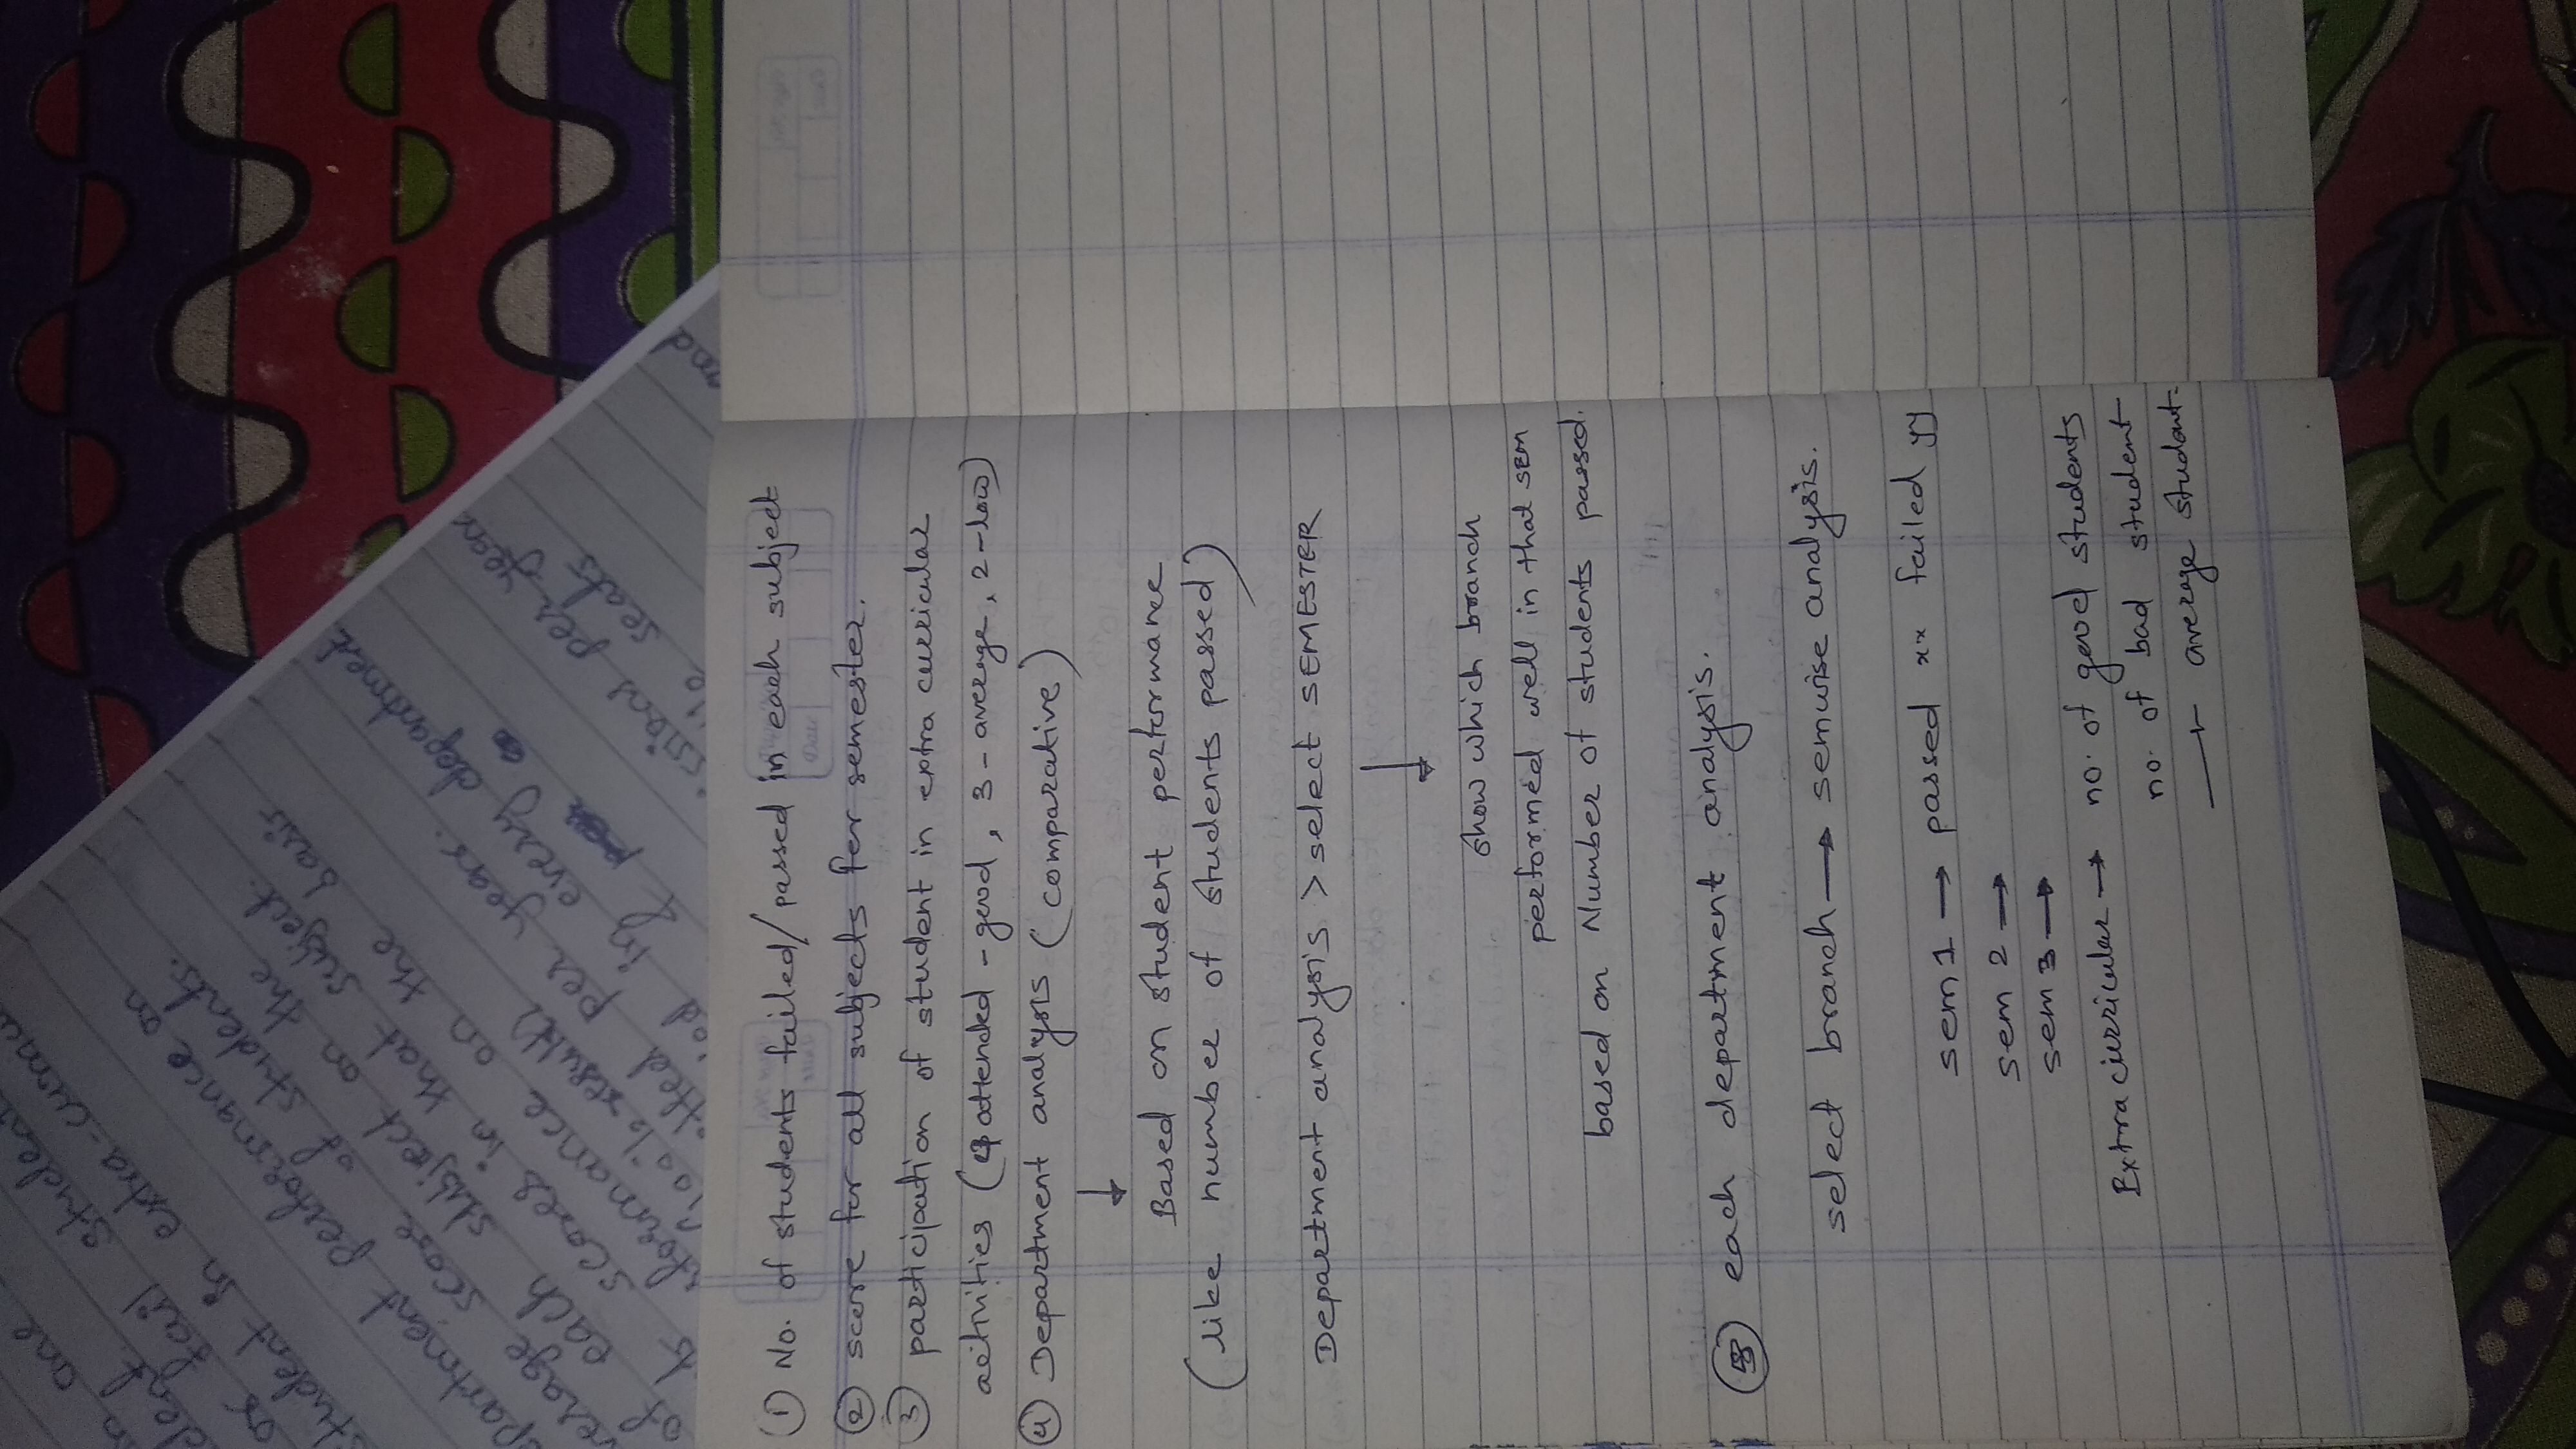 in one
or fail student
student in extra-curricu
performance on
average score of students.
of each subject on the
scores in that subject.
on the basis
result)
per year.
in every department
&
per year
seats
and
① No. of students failed/passed in each subject
② score for all subjects per semester.
③ participation of student in extra curricular
activities (4 attended - good, 3 - average, 2 - low)
④ Department analysis (comparative)
↓
Based on student performance
(like number of students passed)
Department analysis > select SEMESTER
↓
show which branch
performed well in that SEM
based on Number of students passed.
⑤ each department analysis.
select branch → semwise analysis.
sem 1 → passed xx failed yy
sem 2 →
sem 3 →
Extra curricular → no. of good students
no. of bad student
average student